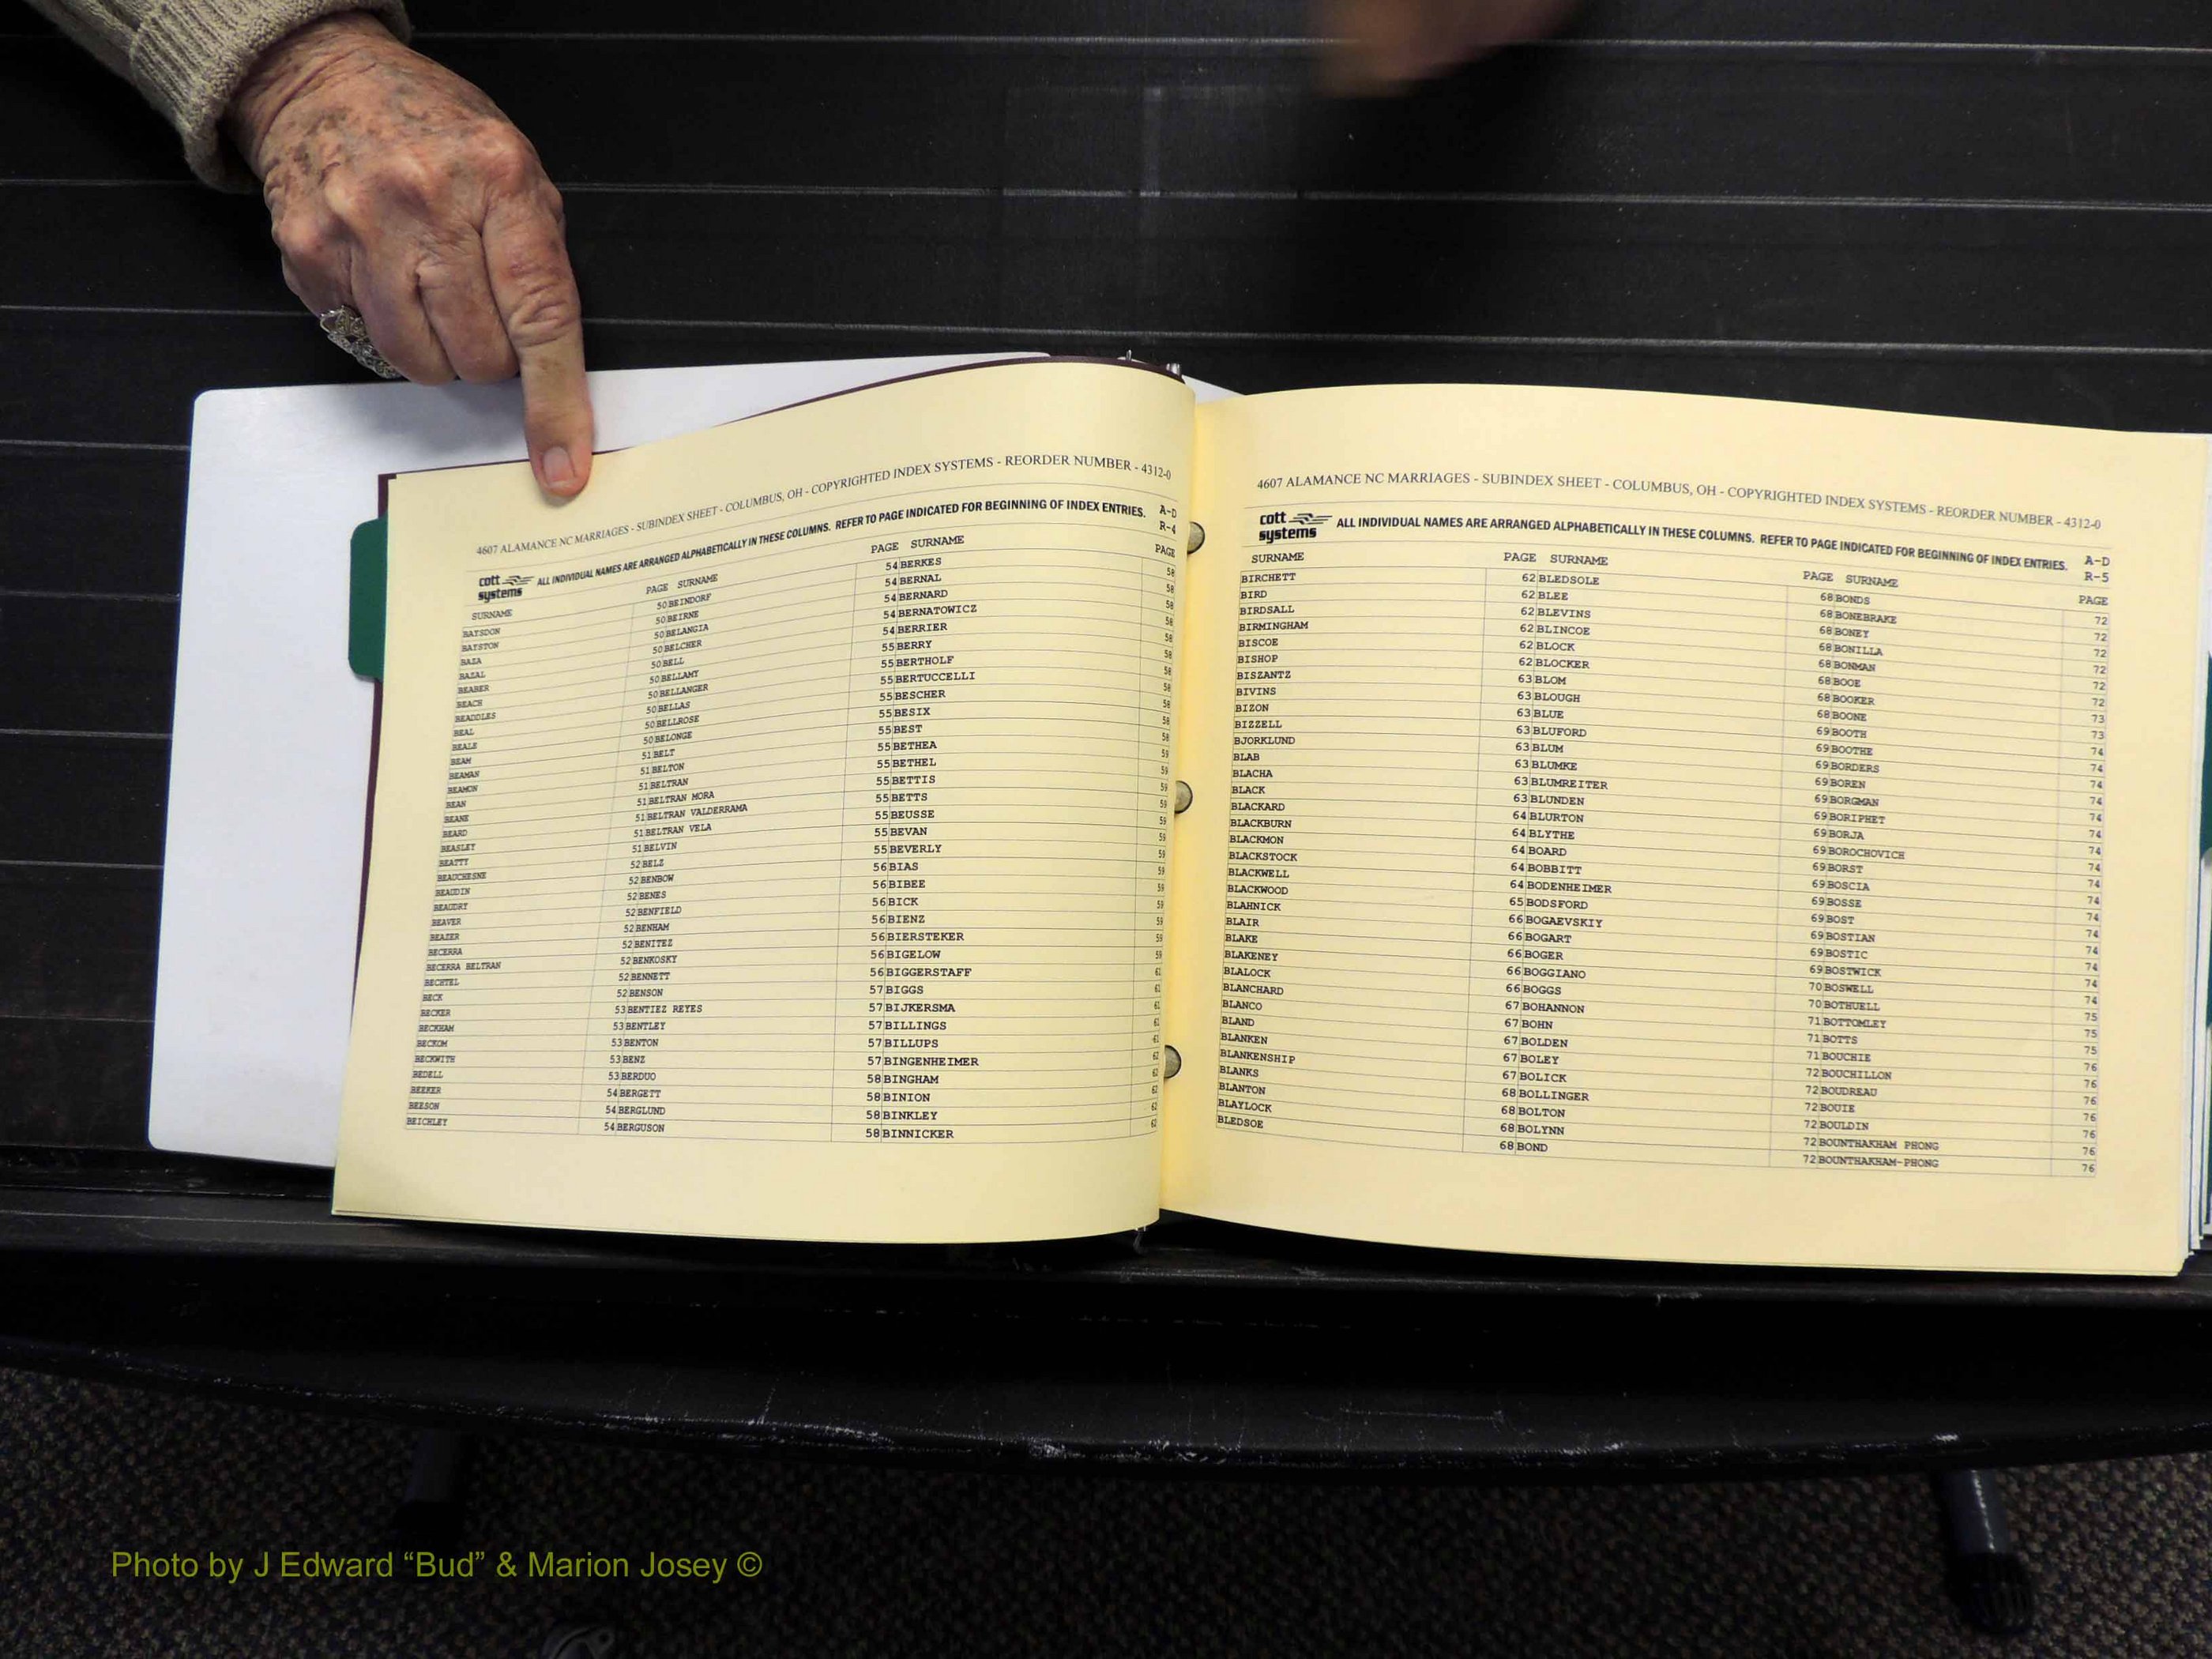 4607 ALAMANCE NC MARRIAGES - SUBINDEX SHEET - COLUMBUS, OH - COPYRIGHTED INDEX SYSTEMS - REORDER NUMBER - 4312-0
cott systems ALL INDIVIDUAL NAMES ARE ARRANGED ALPHABETICALLY IN THESE COLUMNS. REFER TO PAGE INDICATED FOR BEGINNING OF INDEX ENTRIES. A-D R-4
SURNAME PAGE SURNAME PAGE SURNAME PAGE
BAYSDON 50 BEINDORF 54 BERKES 58
BAYSTON 50 BEIRNE 54 BERNAL 58
BAZA 50 BELANGIA 54 BERNARD 58
BAZAL 50 BELCHER 54 BERNATOWICZ 58
BEABER 50 BELL 54 BERRIER 58
BEACH 50 BELLAMY 55 BERRY 58
BEADDLES 50 BELLANGER 55 BERTHOLF 58
BEAL 50 BELLAS 55 BERTUCCELLI 58
BEALE 50 BELLROSE 55 BESCHER 58
BEAM 50 BELONGE 55 BESIX 58
BEAMAN 51 BELT 55 BEST 58
BEAMON 51 BELTON 55 BETHEA 59
BEAN 51 BELTRAN 55 BETHEL 59
BEANE 51 BELTRAN MORA 55 BETTIS 59
BEARD 51 BELTRAN VALDERRAMA 55 BETTS 59
BEASLEY 51 BELTRAN VELA 55 BEUSSE 59
BEATTY 51 BELVIN 55 BEVAN 59
BEAUCHESNE 52 BELZ 55 BEVERLY 59
BEAUDIN 52 BENBOW 56 BIAS 59
BEAUDRY 52 BENES 56 BIBEE 59
BEAVER 52 BENFIELD 56 BICK 59
BEAZER 52 BENHAM 56 BIENZ 59
BECERRA 52 BENITEZ 56 BIERSTEKER 59
BECERRA BELTRAN 52 BENKOSKY 56 BIGELOW 59
BECHTEL 52 BENNETT 56 BIGGERSTAFF
BECK 52 BENSON 57 BIGGS
BECKER 53 BENTIEZ REYES 57 BIJKERSMA
BECKHAM 53 BENTLEY 57 BILLINGS
BECKOM 53 BENTON 57 BILLUPS
BECKWITH 53 BENZ 57 BINGENHEIMER 62
BEDELL 53 BERDUO 58 BINGHAM 62
BEEKER 54 BERGETT 58 BINION 62
BEESON 54 BERGLUND 58 BINKLEY 62
BEICHLEY 54 BERGUSON 58 BINNICKER 62
4607 ALAMANCE NC MARRIAGES - SUBINDEX SHEET - COLUMBUS, OH - COPYRIGHTED INDEX SYSTEMS - REORDER NUMBER - 4312-0
cott systems ALL INDIVIDUAL NAMES ARE ARRANGED ALPHABETICALLY IN THESE COLUMNS. REFER TO PAGE INDICATED FOR BEGINNING OF INDEX ENTRIES. A-D R-5
SURNAME PAGE SURNAME PAGE SURNAME PAGE
BIRCHETT 62 BLEDSOLE 68 BONDS 72
BIRD 62 BLEE 68 BONEBRAKE 72
BIRDSALL 62 BLEVINS 68 BONEY 72
BIRMINGHAM 62 BLINCOE 68 BONILLA 72
BISCOE 62 BLOCK 68 BONMAN 72
BISHOP 62 BLOCKER 68 BOOE 72
BISZANTZ 63 BLOM 68 BOOKER 73
BIVINS 63 BLOUGH 68 BOONE 73
BIZON 63 BLUE 69 BOOTH 74
BIZZELL 63 BLUFORD 69 BOOTHE 74
BJORKLUND 63 BLUM 69 BORDERS 74
BLAB 63 BLUMKE 69 BOREN 74
BLACHA 63 BLUMREITER 69 BORGMAN 74
BLACK 63 BLUNDEN 69 BORIPHET 74
BLACKARD 64 BLURTON 69 BORJA 74
BLACKBURN 64 BLYTHE 69 BOROCHOVICH 74
BLACKMON 64 BOARD 69 BORST 74
BLACKSTOCK 64 BOBBITT 69 BOSCIA 74
BLACKWELL 64 BODENHEIMER 69 BOSSE 74
BLACKWOOD 65 BODSFORD 69 BOST 74
BLAHNICK 66 BOGAEVSKIY 69 BOSTIAN 74
BLAIR 66 BOGART 69 BOSTIC 74
BLAKE 66 BOGER 69 BOSTWICK 74
BLAKENEY 66 BOGGIANO 70 BOSWELL 74
BLALOCK 66 BOGGS 70 BOTHUELL 75
BLANCHARD 67 BOHANNON 71 BOTTOMLEY 75
BLANCO 67 BOHN 71 BOTTS 75
BLAND 67 BOLDEN 71 BOUCHIE 76
BLANKEN 67 BOLEY 72 BOUCHILLON 76
BLANKENSHIP 67 BOLICK 72 BOUDREAU 76
BLANKS 68 BOLLINGER 72 BOUIE 76
BLANTON 68 BOLTON 72 BOULDIN 76
BLAYLOCK 68 BOLYNN 72 BOUNTHAKHAM PHONG 76
BLEDSOE 68 BOND 72 BOUNTHAKHAM-PHONG 76
Photo by J Edward “Bud” & Marion Josey ©